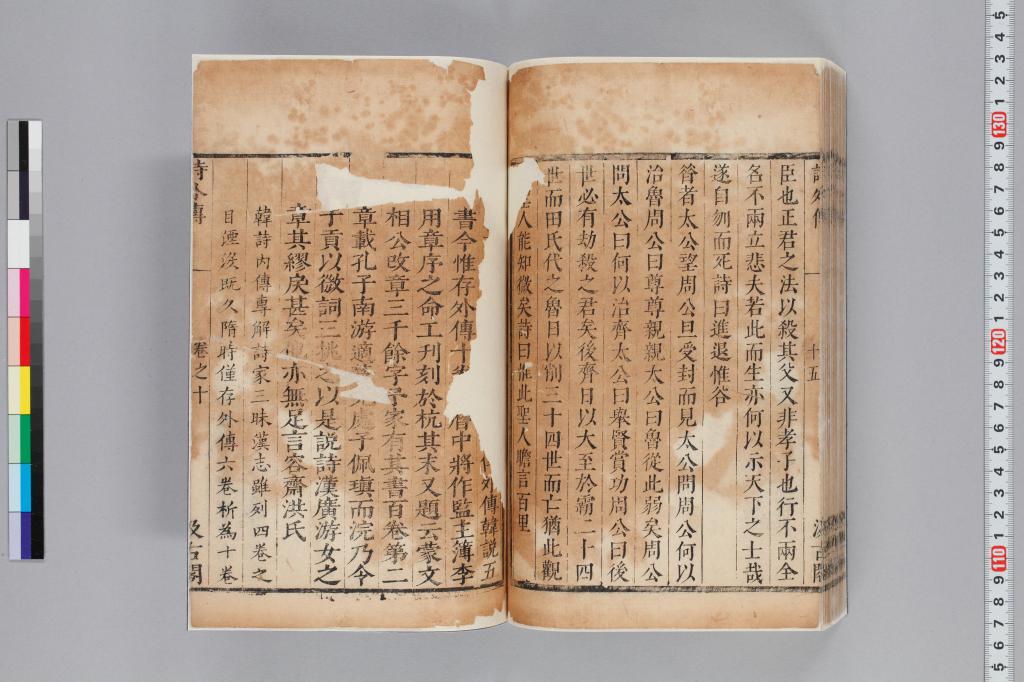 詩外傳
十五
汲古閣
臣也正君之法以殺其父又非孝子也行不兩全
名不兩立悲夫若此而生亦何以示天下之士哉
遂自刎而死詩曰進退惟谷
昔者太公望周公旦受封而見太公問周公何以
治魯周公曰尊尊親親太公曰魯從此弱矣周公
問太公曰何以治齊太公曰舉賢賞功周公曰後
世必有劫殺之君矣後齊日以大至於霸二十四
世而田氏代之魯日以削三十四世而亡猶此觀
聖人能知微矣詩曰惟此聖人瞻言百里
外傳韓說五
書今惟存外傳十 中將作監主簿李
用章序之命工刊刻於杭其末又題云蒙文
相公改章三千餘字予家有其書百卷第二
章載孔子南游適 處子佩瑱而浣乃令
子貢以微詞三挑之以是說詩漢廣游女之
章其繆戾甚矣 亦無足言容齋洪氏
韓詩内傳專解詩家三昧漢志雖列四卷之
目湮沒既久隋時僅存外傳六卷析為十卷
詩外傳
卷之十
汲古閣
5
4
3
2
1
130
9
8
7
6
5
4
3
2
1
120
9
8
7
6
5
4
3
2
1
110
9
8
7
6
5